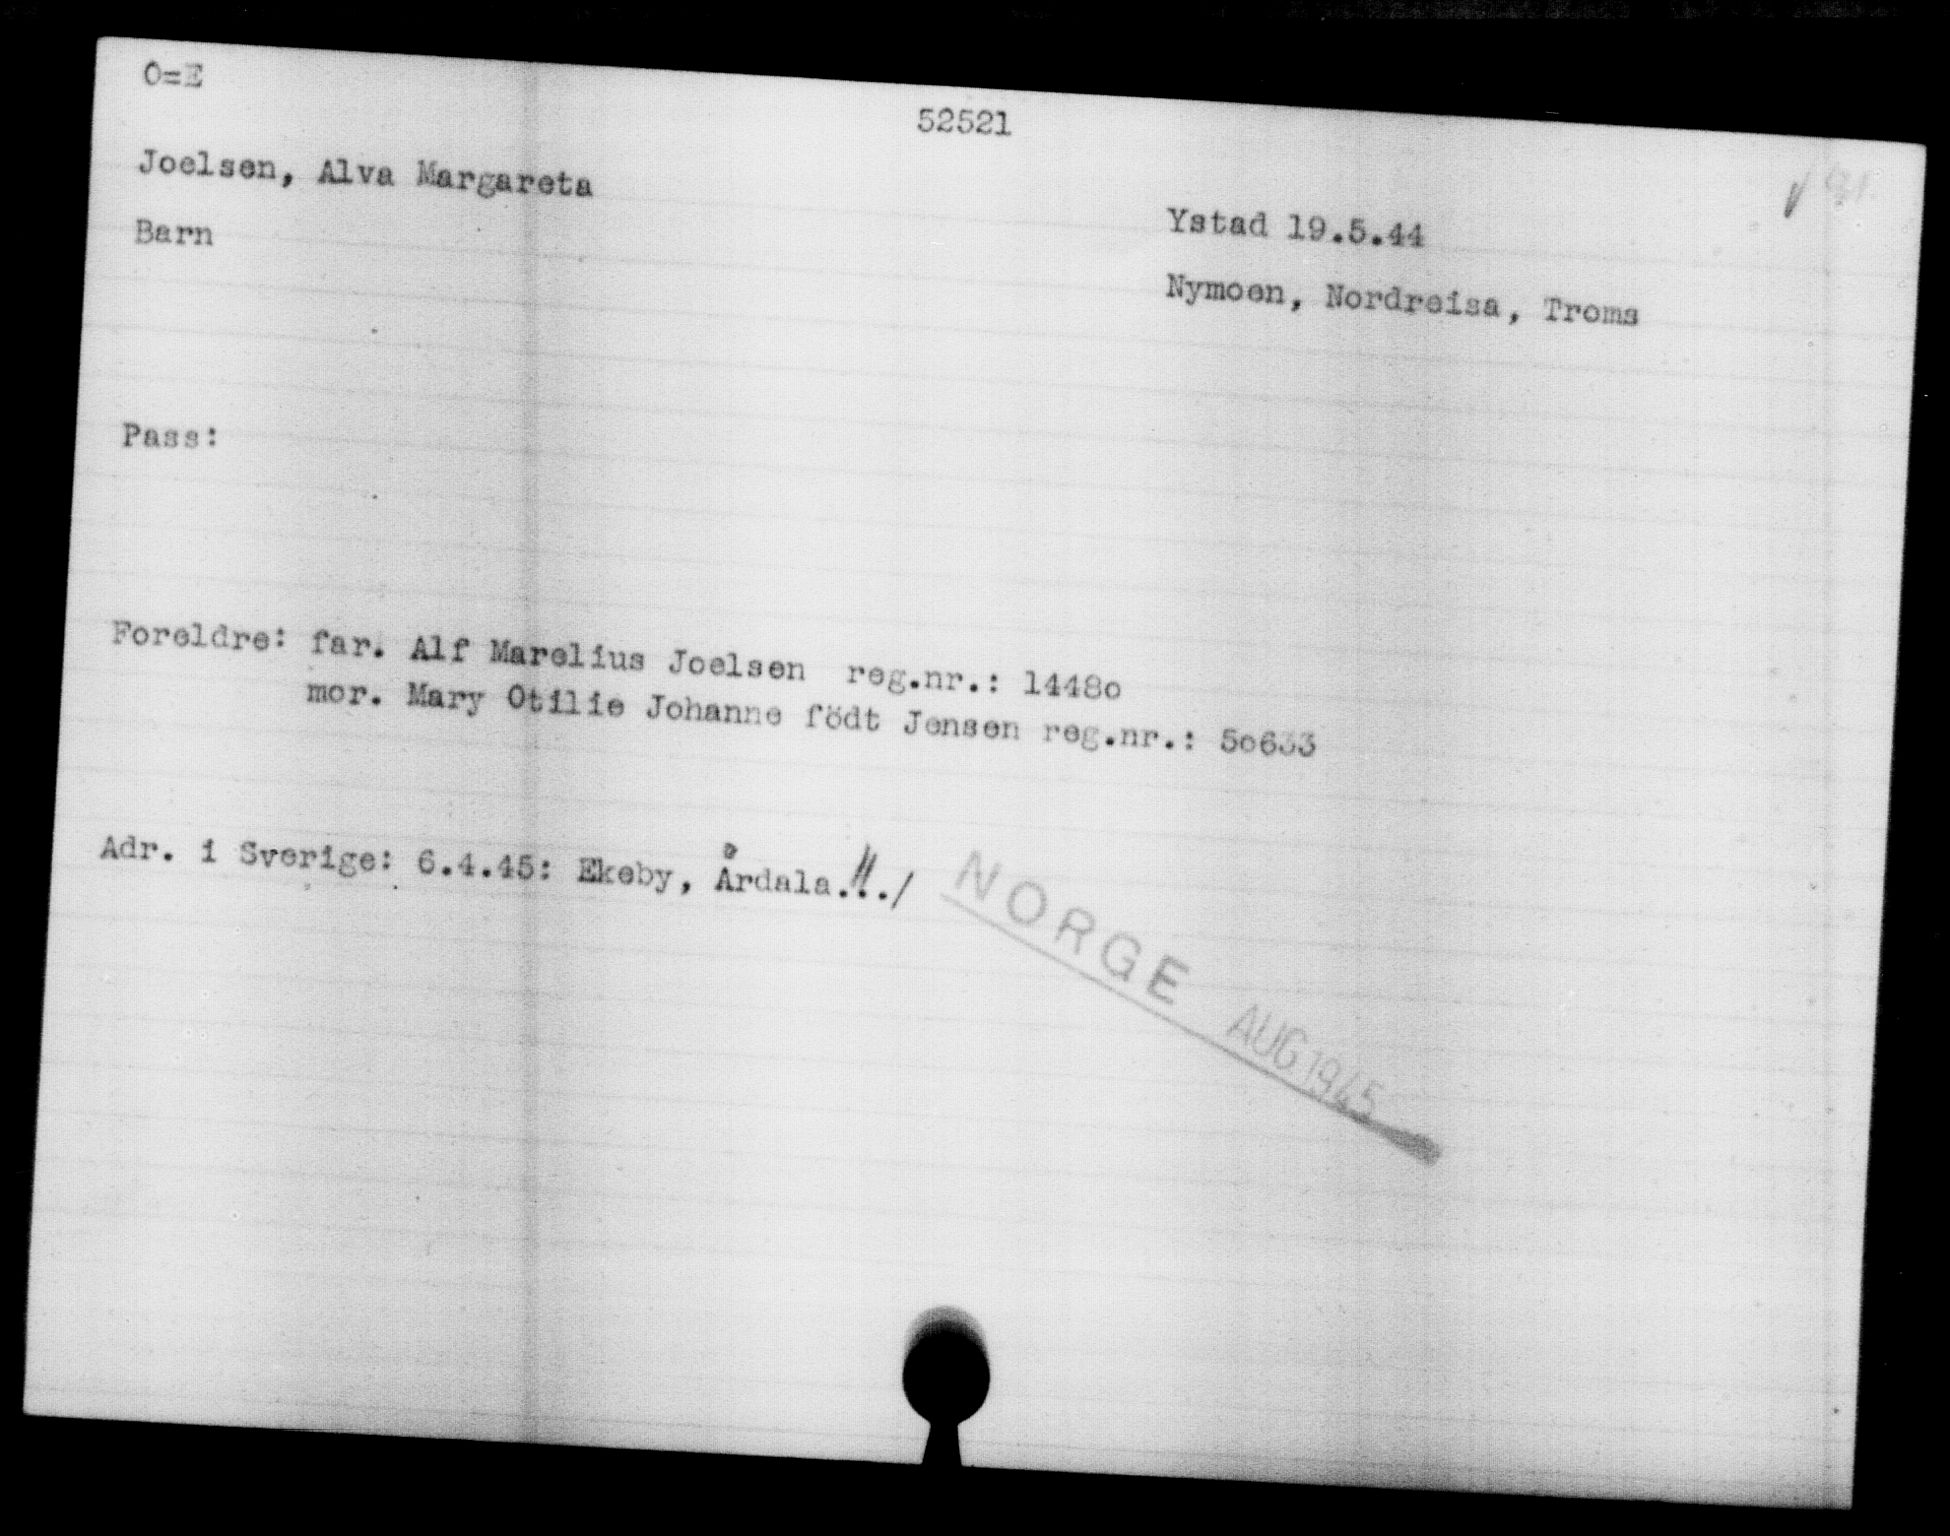 O=E
52521
Joelsen, Alva Margareta
Ystad 19.5.44
Barn
Nymoen, Nordreisa, Troms
Pass:
Foreldre: far. Alf Marelius Joelsen reg.nr.: 1448o
mor. Mary Otilie Johanne födt Jensen reg.nr.: 5o633
Adr. i Sverige: 6.4.45: Ekeby, Årdala.../
NORGE AUG 1945